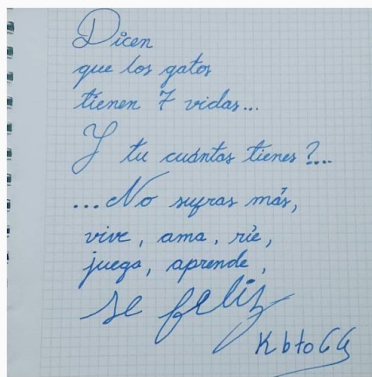 Dicen
que los gatos
tienen 7 vidas...
Y tu cuántas tienes?...
...No sufras más,
vive, ama, ríe,
juega, aprende,
se feliz